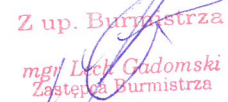 Z up. Burmistrza
mgr Lech Gadomski
Zastępca Burmistrza